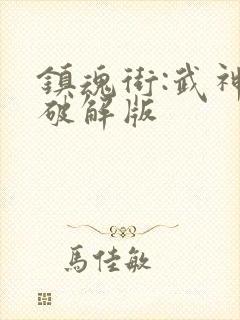 鎮魂街:武神
破解版
馬佳敏